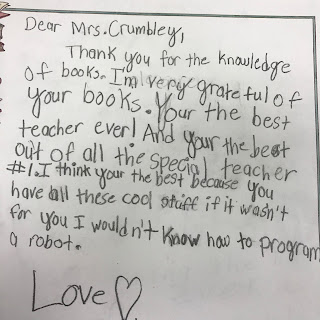 Dear Mrs. Crumbley,
Thank you for the knowledge
of books. I'm very grateful of
your books. Your the best
teacher ever! And your the best
out of all the special teacher
#1. I think your the best because you
have all these cool stuff if it wasn't
for you I wouldn't know how to program
a robot.
Love